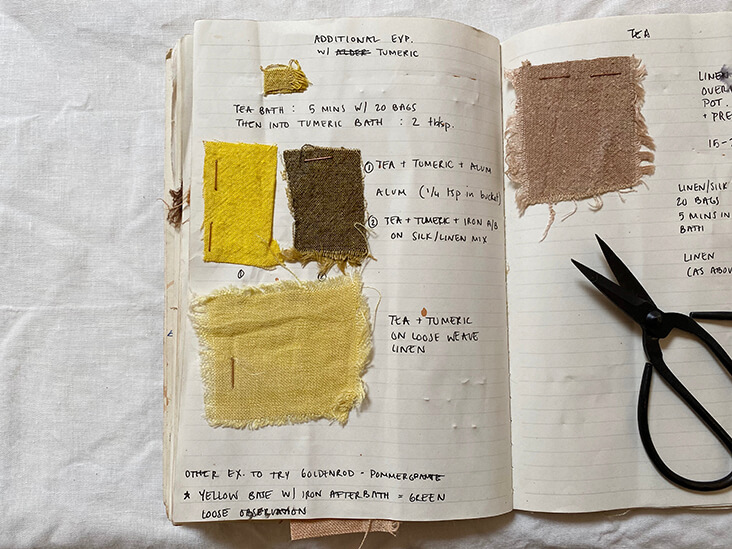 ADDITIONAL EXP.
W/ ALDER TUMERIC
TEA BATH : 5 MINS W/ 20 BAGS
THEN INTO TUMERIC BATH : 2 tbsp.
① TEA + TUMERIC + ALUM
ALUM (1/4 tsp in bucket)
② TEA + TUMERIC + IRON A/B
ON SILK/LINEN MIX
①
TEA + TUMERIC
ON LOOSE WEAVE
LINEN
OTHER EX. TO TRY GOLDENROD - POMMERGRANTE
* YELLOW BASE W/ IRON AFTERBATH = GREEN
LOOSE OBSERVATION
TEA
LINEN
POT.
+ PRE
15-
LINEN/SILK
20 BAGS
5 MINS IN
BATH
LINEN
(AS ABOV